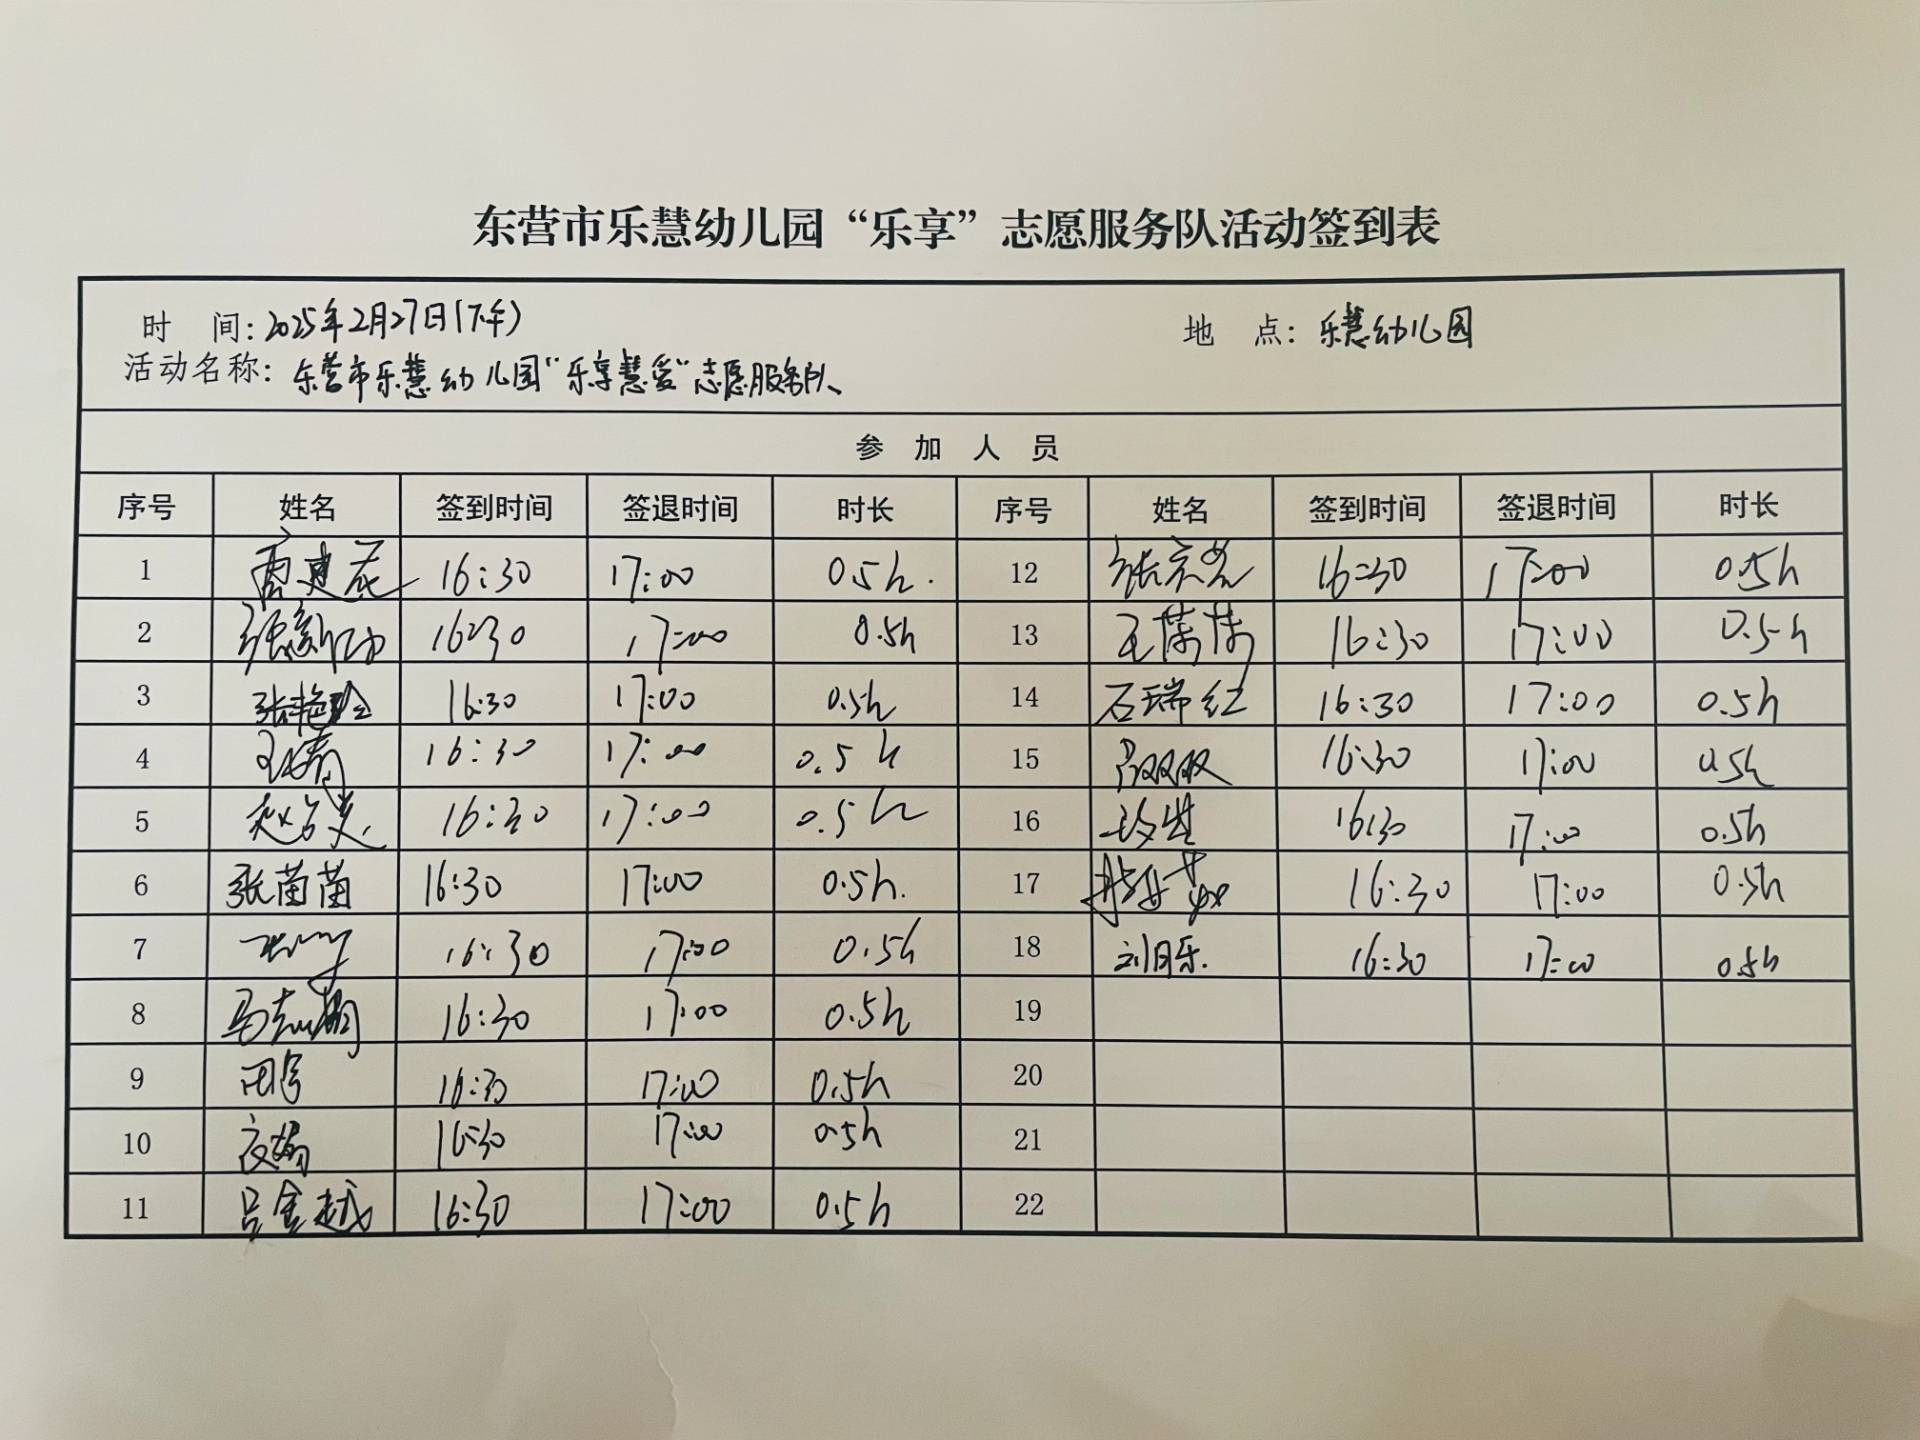 东营市乐慧幼儿园“乐享”志愿服务队活动签到表
时 间：2025年2月27日(下午) 地 点：乐慧幼儿园
活动名称：东营市乐慧幼儿园“乐享慧爱”志愿服务队
参 加 人 员
序号 姓名 签到时间 签退时间 时长 序号 姓名 签到时间 签退时间 时长
1 16:30 17:00 0.5h. 12 16:30 17:00 0.5h
2 16:30 17:00 0.5h 13 16:30 17:00 0.5h
3 16:30 17:00 0.5h 14 石瑞红 16:30 17:00 0.5h
4 16:30 17:00 0.5h 15 吕双双 16:30 17:00 0.5h
5 16:30 17:00 0.5h 16 16:30 17:00 0.5h
6 张苗苗 16:30 17:00 0.5h. 17 16:30 17:00 0.5h
7 16:30 17:00 0.5h 18 16:30 17:00 0.5h
8 16:30 17:00 0.5h 19
9 16:30 17:00 0.5h 20
10 16:30 17:00 0.5h 21
11 吕金越 16:30 17:00 0.5h 22